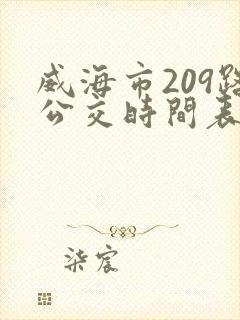 威海市209路
公交時間表
柒宸